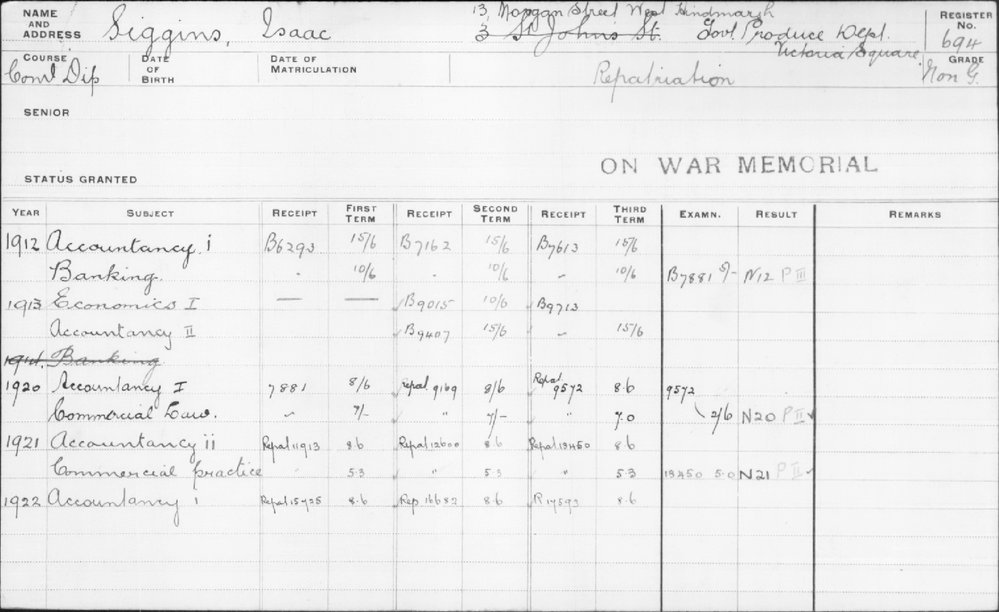 NAME AND ADDRESS Siggins, Isaac 13, Morgan Street West Hindmarsh
3 St Johns St. Govt Produce Dept. Victoria Square
REGISTER No. 694
COURSE Coml Dip DATE OF BIRTH DATE OF MATRICULATION Repatriation GRADE Non G.
SENIOR
ON WAR MEMORIAL
STATUS GRANTED
YEAR SUBJECT RECEIPT FIRST TERM RECEIPT SECOND TERM RECEIPT THIRD TERM EXAMN. RESULT REMARKS
1912 Accountancy i B6293 15/6 B7162 15/6 B7613 15/6
Banking. " 10/6 " 10/6 " 10/6 B7881 5/- N12 P III
1913 Economics I — — B9015 10/6 B9713
Accountancy II B9407 15/6 " 15/6
1914. Banking
1920 Accountancy I 7881 8/6 repat 9169 8/6 Repat 9572 8.6 9572
Commercial Law. " 7/- " 7/- " 7.0 2/6 N20 P II
1921 Accountancy ii Repat 11913 8.6 Repat 12600 8.6 Repat 13450 8.6
Commercial practice " 5.3 " 5.3 " 5.3 13450 5.0 N21 P II
1922 Accountancy i Repat 15725 8.6 Rep. 16682 8.6 R 17593 8.6